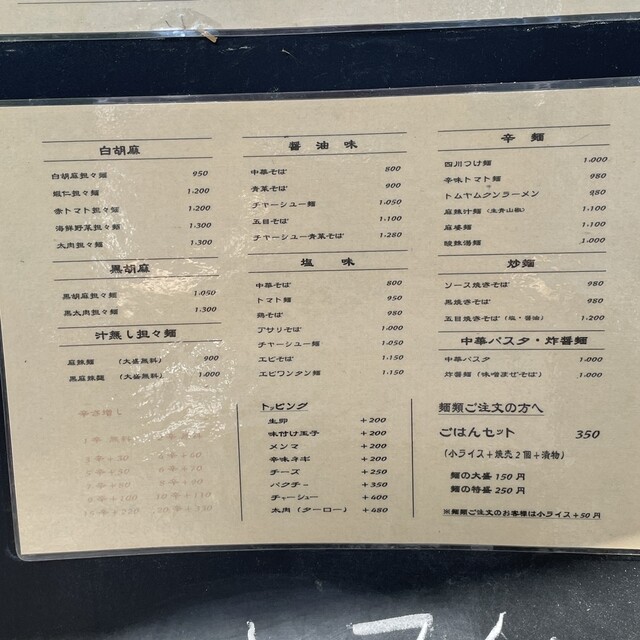 白胡麻
白胡麻担々麺 950
蝦仁担々麺 1.200
赤トマト担々麺 1.200
海鮮野菜担々麺 1.300
太肉担々麺 1.300
黒胡麻
黒胡麻担々麺 1.050
黒太肉担々麺 1.300
汁無し担々麺
麻辣麺 (大盛無料) 900
黒麻辣麺 (大盛無料) 1.000
辛さ増し
1辛 無料
醤油味
中華そば 800
青菜そば 900
チャーシュー麺 1.050
五目そば 1.100
チャーシュー青菜そば 1.280
塩味
中華そば 800
トマト麺 950
鶏そば 950
アサリそば 1.000
チャーシュー麺 1.050
エビそば 1.150
エビワンタン麺 1.150
トッピング
生卵 +200
味付け玉子 +200
メンマ +200
辛味ネギ +200
チーズ +250
パクチー +350
チャーシュー +400
太肉 (ターロー) +480
辛麺
四川つけ麺 1.000
辛味トマト麺 980
トムヤムクンラーメン 980
麻辣汁麺 (生青山椒) 1.100
麻婆麺 1.100
酸辣湯麺 1.000
炒麺
ソース焼きそば 980
黒焼きそば 980
五目焼きそば (塩・醤油) 1.200
中華パスタ・炸醤麺
中華パスタ 1.000
炸醤麺 (味噌まぜそば) 1.000
麺類ご注文の方へ
ごはんセット 350
(小ライス+焼売2個+漬物)
麺の大盛 150円
麺の特盛 250円
※麺類ご注文のお客様は小ライス+50円